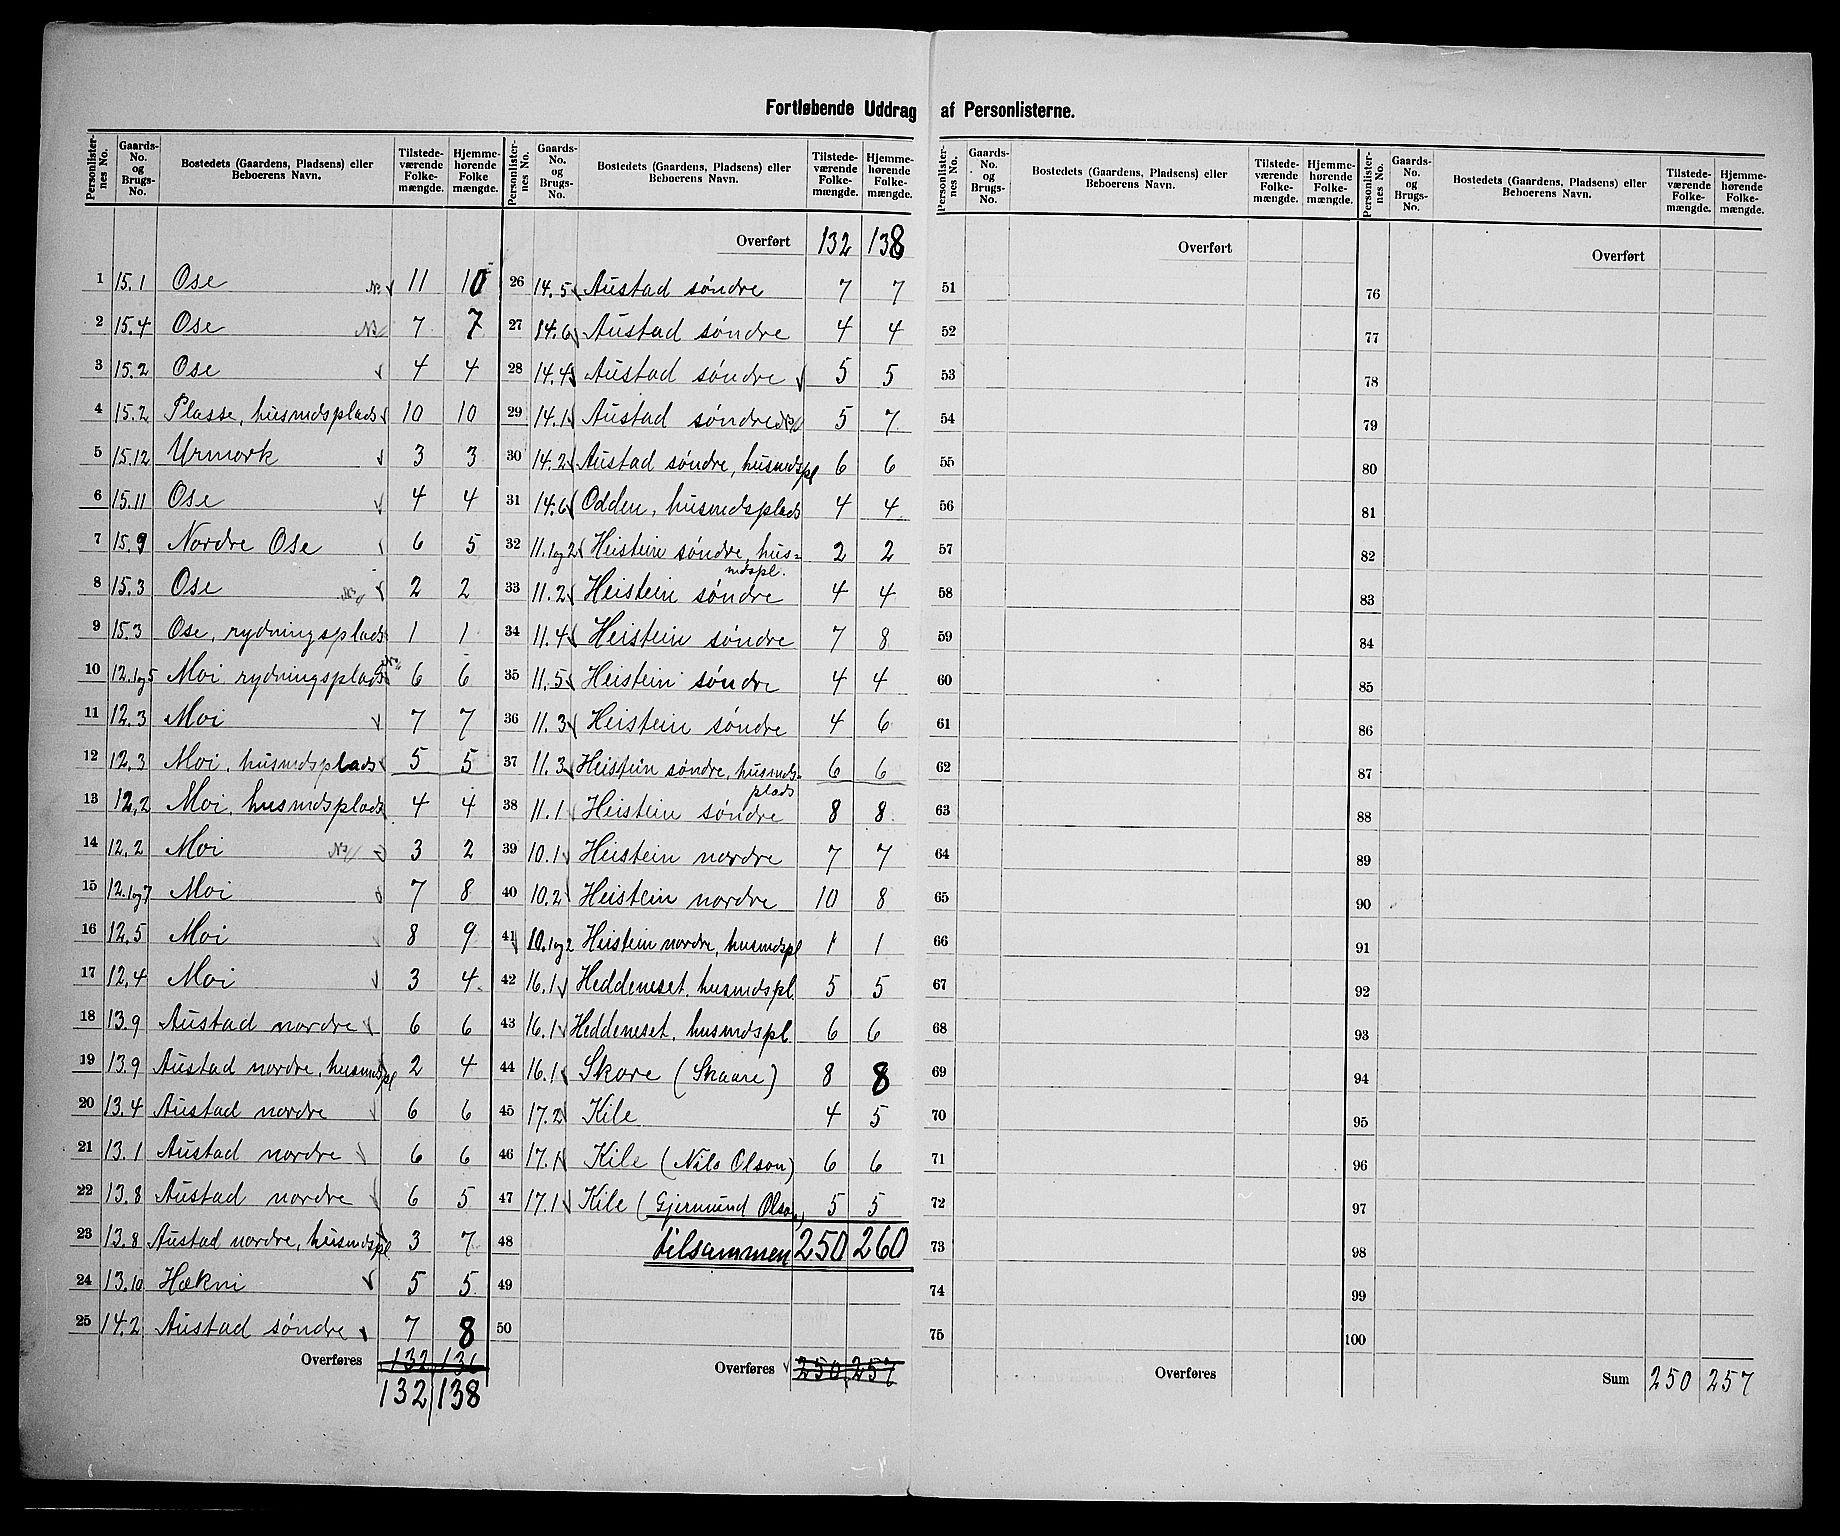 Fortløbende Uddrag af Personlisterne.
Personlister-nes No. Gaards-No. og Brugs-No. Bostedets (Gaardens, Pladsens) eller Beboerens Navn. Tilstede-værende Folke-mængde. Hjemme-hørende Folke mængde.
1 15.1 Ose 11 10
2 15.4 Ose 7 7
3 15.2 Ose 4 4
4 15.2 Plasse, husmdsplads 10 10
5 15.12 Urmork 3 3
6 15.11 Ose 4 4
7 15.9 Nordre Ose 6 5
8 15.3 Ose 2 2
9 15.3 Ose, rydningsplads 1 1
10 12.1og5 Moi, rydningsplads 6 6
11 12.3 Moi 7 7
12 12.3 Moi, husmdsplads 5 5
13 12.2 Moi, husmdsplads 4 4
14 12.2 Moi 3 2
15 12.1og7 Moi 7 8
16 12.5 Moi 8 9
17 12.4 Moi 3 4
18 13.9 Austad nordre 6 6
19 13.9 Austad nordre, husmdspl 2 4
20 13.4 Austad nordre 6 6
21 13.1 Austad nordre 6 6
22 13.8 Austad nordre 6 5
23 13.8 Austad nordre, husmdspl 3 7
24 13.10 Hækni 5 5
25 14.2 Austad søndre 7 8
Overføres 132 136
132 138
Personlister-nes No. Gaards-No. og Brugs-No. Bostedets (Gaardens, Pladsens) eller Beboerens Navn. Tilstede-værende Folke-mængde. Hjemme-hørende Folke-mængde.
Overført 132 138
26 14.5 Austad søndre 7 7
27 14.6 Austad søndre 4 4
28 14.4 Austad søndre 5 5
29 14.1 Austad søndre 5 7
30 14.2 Austad søndre, husmdspl 6 6
31 14.6 Odden, husmdsplads 4 4
32 11.1og2 Heistein søndre, hus- 2 2
mdspl.
33 11.2 Heistein søndre 4 4
34 11.4 Heistein søndre 7 8
35 11.5 Heistein søndre 4 4
36 11.3 Heistein søndre 4 6
37 11.3 Heistein søndre, husmds- 6 6
plads
38 11.1 Heistein søndre 8 8
39 10.1 Heistein nordre 7 7
40 10.2 Heistein nordre 10 8
41 10.1og2 Heistein nordre, husmdspl 1 1
42 16.1 Heddeneset, husmdspl 5 5
43 16.1 Heddeneset, husmdspl 6 6
44 16.1 Skore (Skaare) 8 8
45 17.2 Kile 4 5
46 17.1 Kile (Nils Olson) 6 6
47 17.1 Kile (Gjermund Olson) 5 5
48 tilsammen 250 260
49
50
Overføres 250 257
Personlister-nes No. Gaards-No. og Brugs-No. Bostedets (Gaardens, Pladsens) eller Beboerens Navn. Tilstede-værende Folke-mængde. Hjemme-hørende Folke-mængde.
Overført
51
52
53
54
55
56
57
58
59
60
61
62
63
64
65
66
67
68
69
70
71
72
73
74
75
Overføres
Personlister-nes No. Gaards-No. og Brugs-No. Bostedets (Gaardens, Pladsens) eller Beboerens Navn. Tilstede-værende Folke-mængde. Hjemme-hørende Folke-mængde.
Overført
76
77
78
79
80
81
82
83
84
85
86
87
88
89
90
91
92
93
94
95
96
97
98
99
100
Sum 250 257